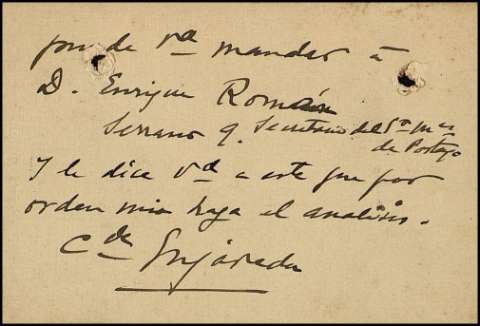 puede Vd mandar à
D. Enrique Román
Serrano 9. Secretario del Sr Mes
de Portago
y le dice Vd a este que por
orden mia haga el analisis.
Cde